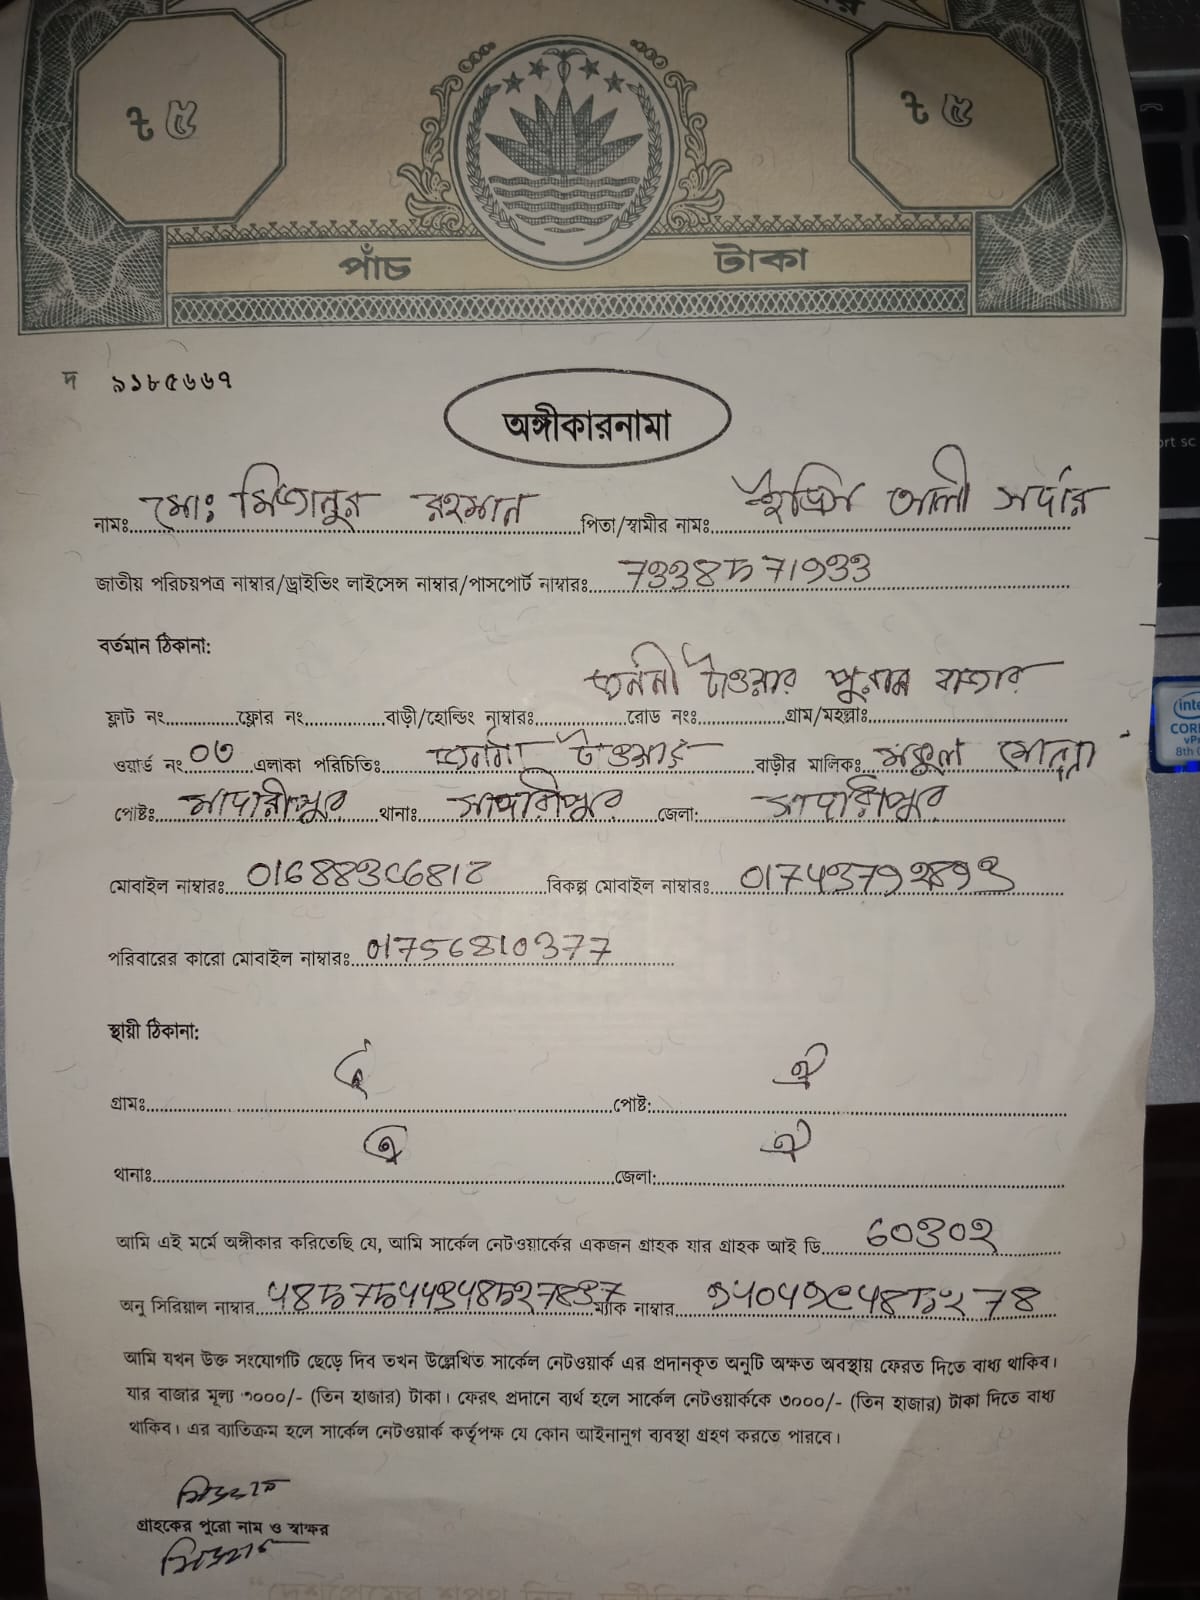 ৳ ৫ ৳ ৫
পাঁচ টাকা
দ ৯১৮৫৬৬৭
অঙ্গীকারনামা
নামঃ মোঃ মিজানুর রহমান পিতা/স্বামীর নামঃ ইদ্রিস আলী সর্দার
জাতীয় পরিচয়পত্র নাম্বার/ড্রাইভিং লাইসেন্স নাম্বার/পাসপোর্ট নাম্বারঃ
বর্তমান ঠিকানা:
ফ্লাট নং ফ্লোর নং বাড়ী/হোল্ডিং নাম্বারঃ রোড নংঃ গ্রাম/মহল্লাঃ টাওয়ার পুরান বাজার
ওয়ার্ড নং ০৩ এলাকা পরিচিতিঃ টাওয়ার বাড়ীর মালিকঃ মোল্লা
পোষ্টঃ মাদারীপুর থানাঃ মাদারীপুর জেলা: মাদারীপুর
মোবাইল নাম্বারঃ বিকল্প মোবাইল নাম্বারঃ
পরিবারের কারো মোবাইল নাম্বারঃ 01756810377
স্থায়ী ঠিকানা:
গ্রামঃ ঐ পোষ্ট: ঐ
থানাঃ ঐ জেলা: ঐ
আমি এই মর্মে অঙ্গীকার করিতেছি যে, আমি সার্কেল নেটওয়ার্কের একজন গ্রাহক যার গ্রাহক আই ডি 60302
অনু সিরিয়াল নাম্বার ম্যাক নাম্বার
আমি যখন উক্ত সংযোগটি ছেড়ে দিব তখন উল্লেখিত সার্কেল নেটওয়ার্ক এর প্রদানকৃত অনুটি অক্ষত অবস্থায় ফেরত দিতে বাধ্য থাকিব।
যার বাজার মূল্য ৩০০০/- (তিন হাজার) টাকা। ফেরৎ প্রদানে ব্যর্থ হলে সার্কেল নেটওয়ার্ককে ৩০০০/- (তিন হাজার) টাকা দিতে বাধ্য
থাকিব। এর ব্যাতিক্রম হলে সার্কেল নেটওয়ার্ক কর্তৃপক্ষ যে কোন আইনানুগ ব্যবস্থা গ্রহণ করতে পারবে।
গ্রাহকের পুরো নাম ও স্বাক্ষর